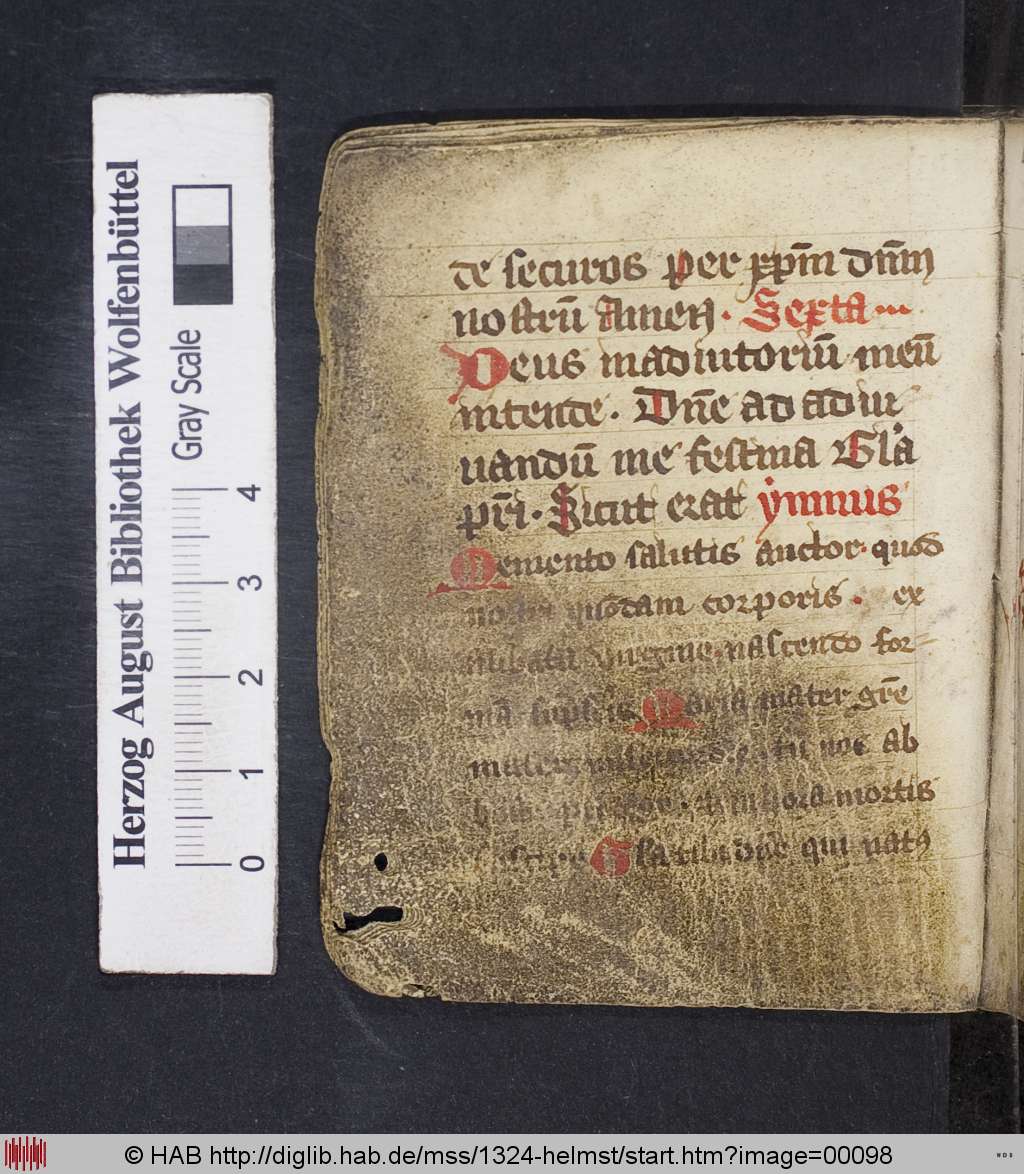 Herzog August Bibliothek Wolfenbüttel
Gray Scale
0 1 2 3 4
te securos per xp̄m dn̄m
nostrū Amen. Sexta
Deus in adiutoriū meū
intende. Dn̄e ad adiu
uandū me festina Gl'a
pr̄i. Sicut erat ymnus
Memento salutis auctor. quod
nostri quōdam corporis. ex
illibata virgine. nascendo for-
mā sūpseris Maria mater gr̄e
mater tu nos ab
hoste hora mortis
suscipe Gl'a tibi dn̄e qui natꝰ
© HAB http://diglib.hab.de/mss/1324-helmst/start.htm?image=00098